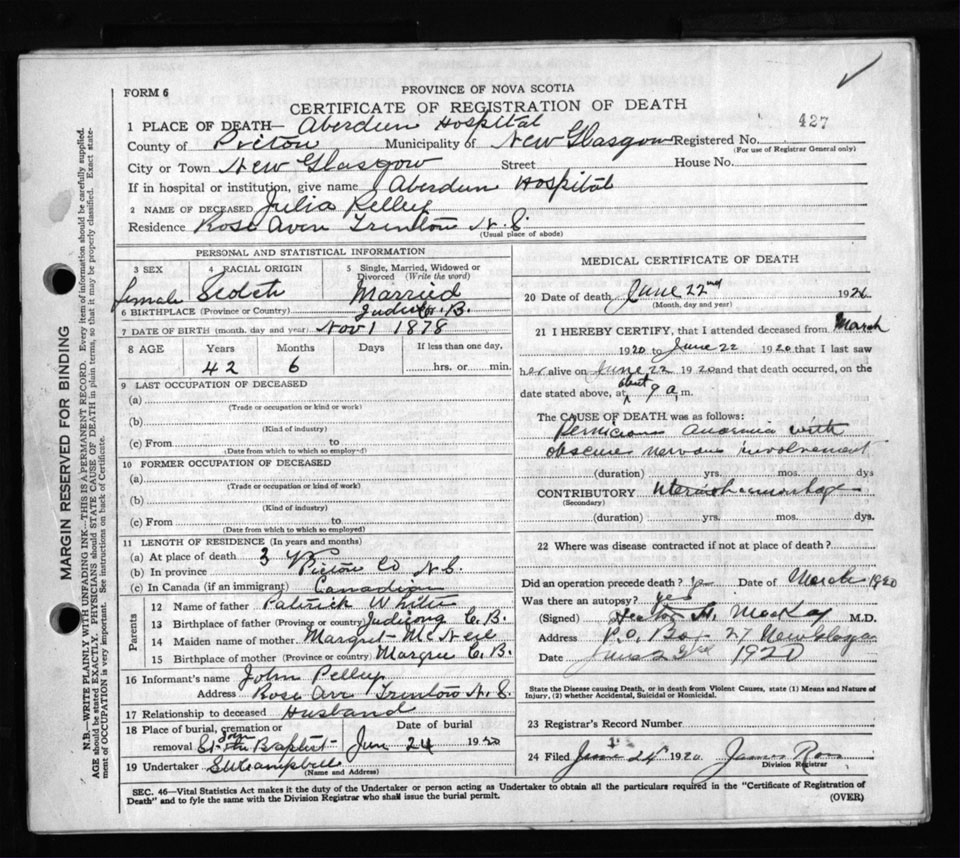 FORM 6
PROVINCE OF NOVA SCOTIA
CERTIFICATE OF REGISTRATION OF DEATH
1 PLACE OF DEATH— Aberdeen Hospital
County of Pictou Municipality of New Glasgow Registered No. 427
(For use of Registrar General only)
City or Town New Glasgow Street House No.
If in hospital or institution, give name Aberdeen Hospital
2 NAME OF DECEASED Julia
Residence Rose Aven Trenton N.S.
(Usual place of abode)
PERSONAL AND STATISTICAL INFORMATION
3 SEX 4 RACIAL ORIGIN 5 Single, Married, Widowed or Divorced (Write the word)
female Scotch Married
6 BIRTHPLACE (Province or Country) C.B.
7 DATE OF BIRTH (month, day and year) Nov 1 1878
8 AGE Years Months Days If less than one day,
42 6 hrs. or min.
9 LAST OCCUPATION OF DECEASED
(a)
(Trade or occupation or kind or work)
(b)
(Kind of industry)
(c) From to
(Date from which to which so employed)
10 FORMER OCCUPATION OF DECEASED
(a)
(Trade or occupation or kind of work)
(b)
(Kind of industry)
(c) From to
(Date from which to which so employed)
11 LENGTH OF RESIDENCE (In years and months)
(a) At place of death 3
(b) In province Pictou Co N.S.
(c) In Canada (if an immigrant) Canadian
Parents
12 Name of father Patrick White
13 Birthplace of father (Province or country) C.B.
14 Maiden name of mother Margret McNeil
15 Birthplace of mother (Province or country) Margree C.B.
16 Informant's name John
Address Rose Ave Trenton N.S.
17 Relationship to deceased Husband
18 Place of burial, cremation or removal Date of burial
St. John Baptist June 24 1920
19 Undertaker Campbell
(Name and Address)
MEDICAL CERTIFICATE OF DEATH
20 Date of death June 22nd 192
(Month, day and year)
21 I HEREBY CERTIFY, that I attended deceased from March
1920 to June 22 1920 that I last saw
her alive on June 22 1920 and that death occurred, on the
date stated above, at about 9 a m.
The CAUSE OF DEATH was as follows:
Pernicious anaemia with
obscure nervous involvement
(duration) yrs. mos. dys
CONTRIBUTORY Uterine hemorrhage
(Secondary)
(duration) yrs. mos. dys.
22 Where was disease contracted if not at place of death?
Did an operation precede death? Date of March 1920
Was there an autopsy? yes
(Signed) MacKay M.D.
Address P.O. Box 27 New Glasgow
Date June 23rd 1920
State the Disease causing Death, or in death from Violent Causes, state (1) Means and Nature of
Injury, (2) whether Accidental, Suicidal or Homicidal.
23 Registrar's Record Number
24 Filed June 24 1920 James
Division Registrar
SEC. 46—Vital Statistics Act makes it the duty of the Undertaker or person acting as Undertaker to obtain all the particulars required in the "Certificate of Registration of
Death" and to fyle the same with the Division Registrar who shall issue the burial permit.
(OVER)
MARGIN RESERVED FOR BINDING
N.B.—WRITE PLAINLY WITH UNFADING INK—THIS IS A PERMANENT RECORD. Every item of information should be carefully supplied.
AGE should be stated EXACTLY. PHYSICIANS should STATE CAUSE OF DEATH in plain terms, so that it may be properly classified. Exact state-
ment of OCCUPATION is very important. See instructions on back of Certificate.